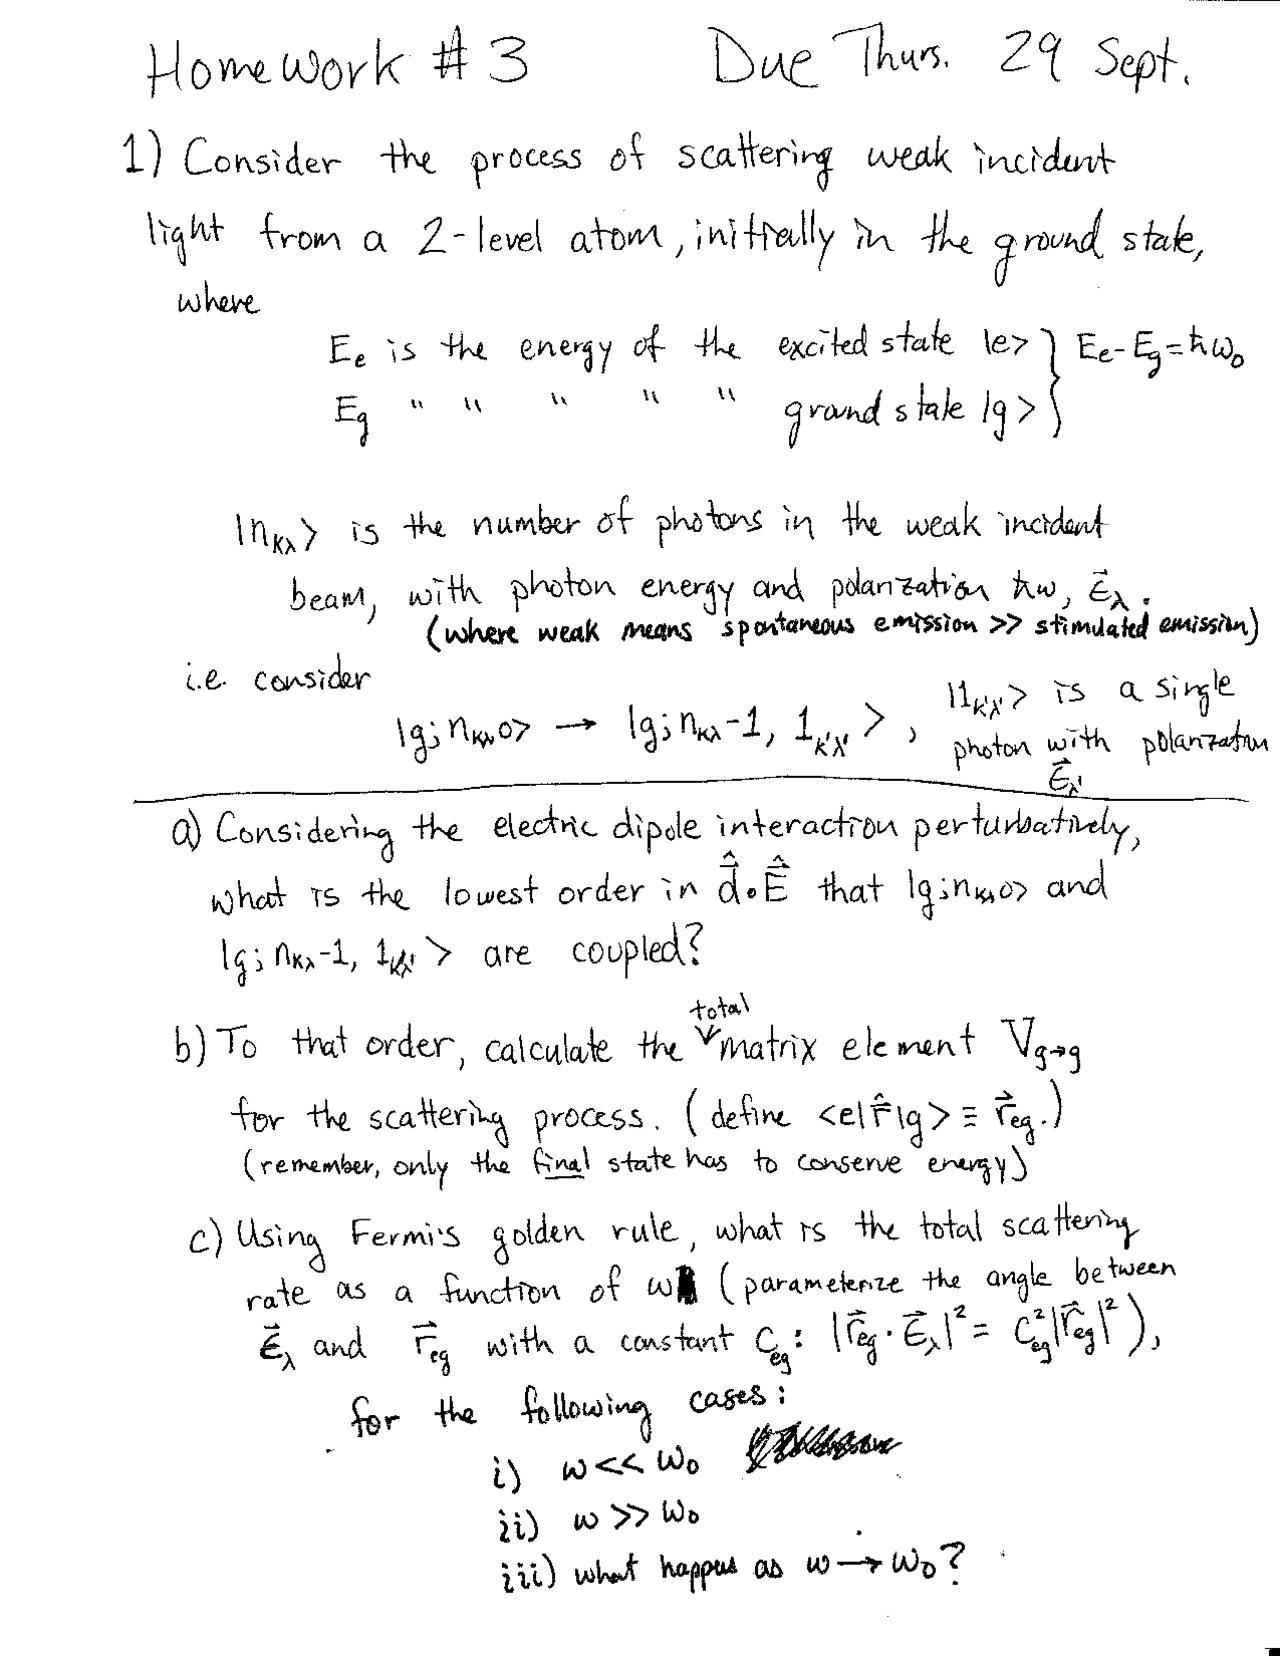 Homework #3 Due Thurs. 29 Sept.
1) Consider the process of scattering weak incident
light from a 2-level atom, initially in the ground state,
where
E_e is the energy of the excited state |e> } E_e - E_g = ħω_0
E_g " " " " " ground state |g> }
|n_{kλ}> is the number of photons in the weak incident
beam, with photon energy and polarization ħω, \vec{ε}_λ.
(where weak means spontaneous emission >> stimulated emission)
i.e. consider
|g; n_{kλ} 0> → |g; n_{kλ}-1, 1_{k'λ'} >, |1_{k'λ'}> is a single
photon with polarization
\vec{ε}_{λ'}
a) Considering the electric dipole interaction perturbatively,
what is the lowest order in \hat{\vec{d}}·\hat{\vec{E}} that |g; n_{kλ} 0> and
|g; n_{kλ}-1, 1_{k'λ'} > are coupled?
b) To that order, calculate the total matrix element V_{g→g}
for the scattering process. (define <e|\hat{\vec{r}}|g> ≡ \vec{r}_{eg}.)
(remember, only the final state has to conserve energy)
c) Using Fermi's golden rule, what is the total scattering
rate as a function of ω (parameterize the angle between
\vec{ε}_λ and \vec{r}_{eg} with a constant C_{eg}: |\vec{r}_{eg}·\vec{ε}_λ|^2 = C_{eg}^2|\vec{r}_{eg}|^2),
for the following cases:
i) ω << ω_0
ii) ω >> ω_0
iii) what happens as ω → ω_0?